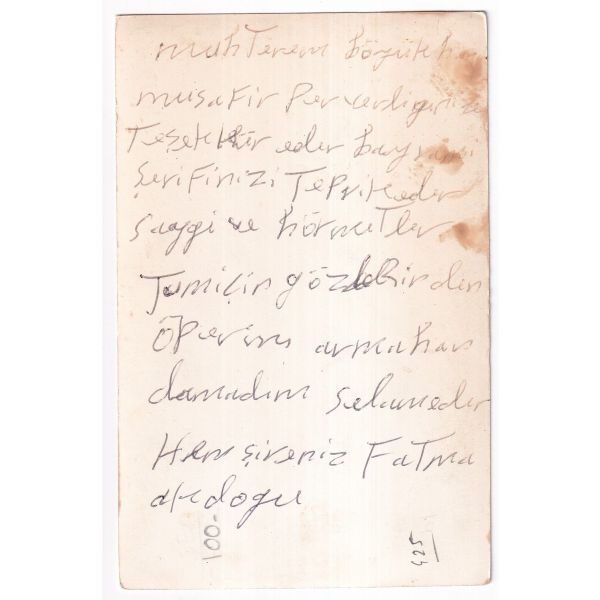 muhTerem böyük ha
musafir Perverdiginize
Teşekkür eder bayramı
Şerifinizi Teprik eder
saygi ve hörmetler
Tumiçin gözlerinden
öperim armahan
damadim selam eder
Hemşireniz FaTma
akdogu
100-
425